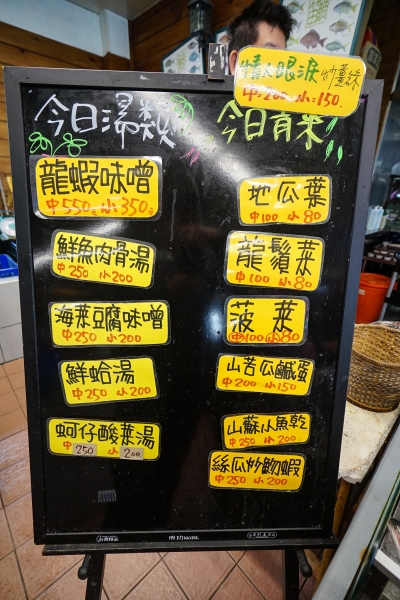 情人眼淚炒薑絲
中200 小150.
今日湯類
今日青菜
龍蝦味噌
中550元 小350元
鮮魚肉骨湯
中250 小200
海菜豆腐味噌
中250 小200
鮮蛤湯
中250 小200
蚵仔酸菜湯
中250 小200
地瓜葉
中100 小80
龍鬚菜
中100 小80
菠菜
中100 小80
山苦瓜鹹蛋
中200 小150
山蘇小魚乾
中250 小200
絲瓜炒魩蝦
中250 小200